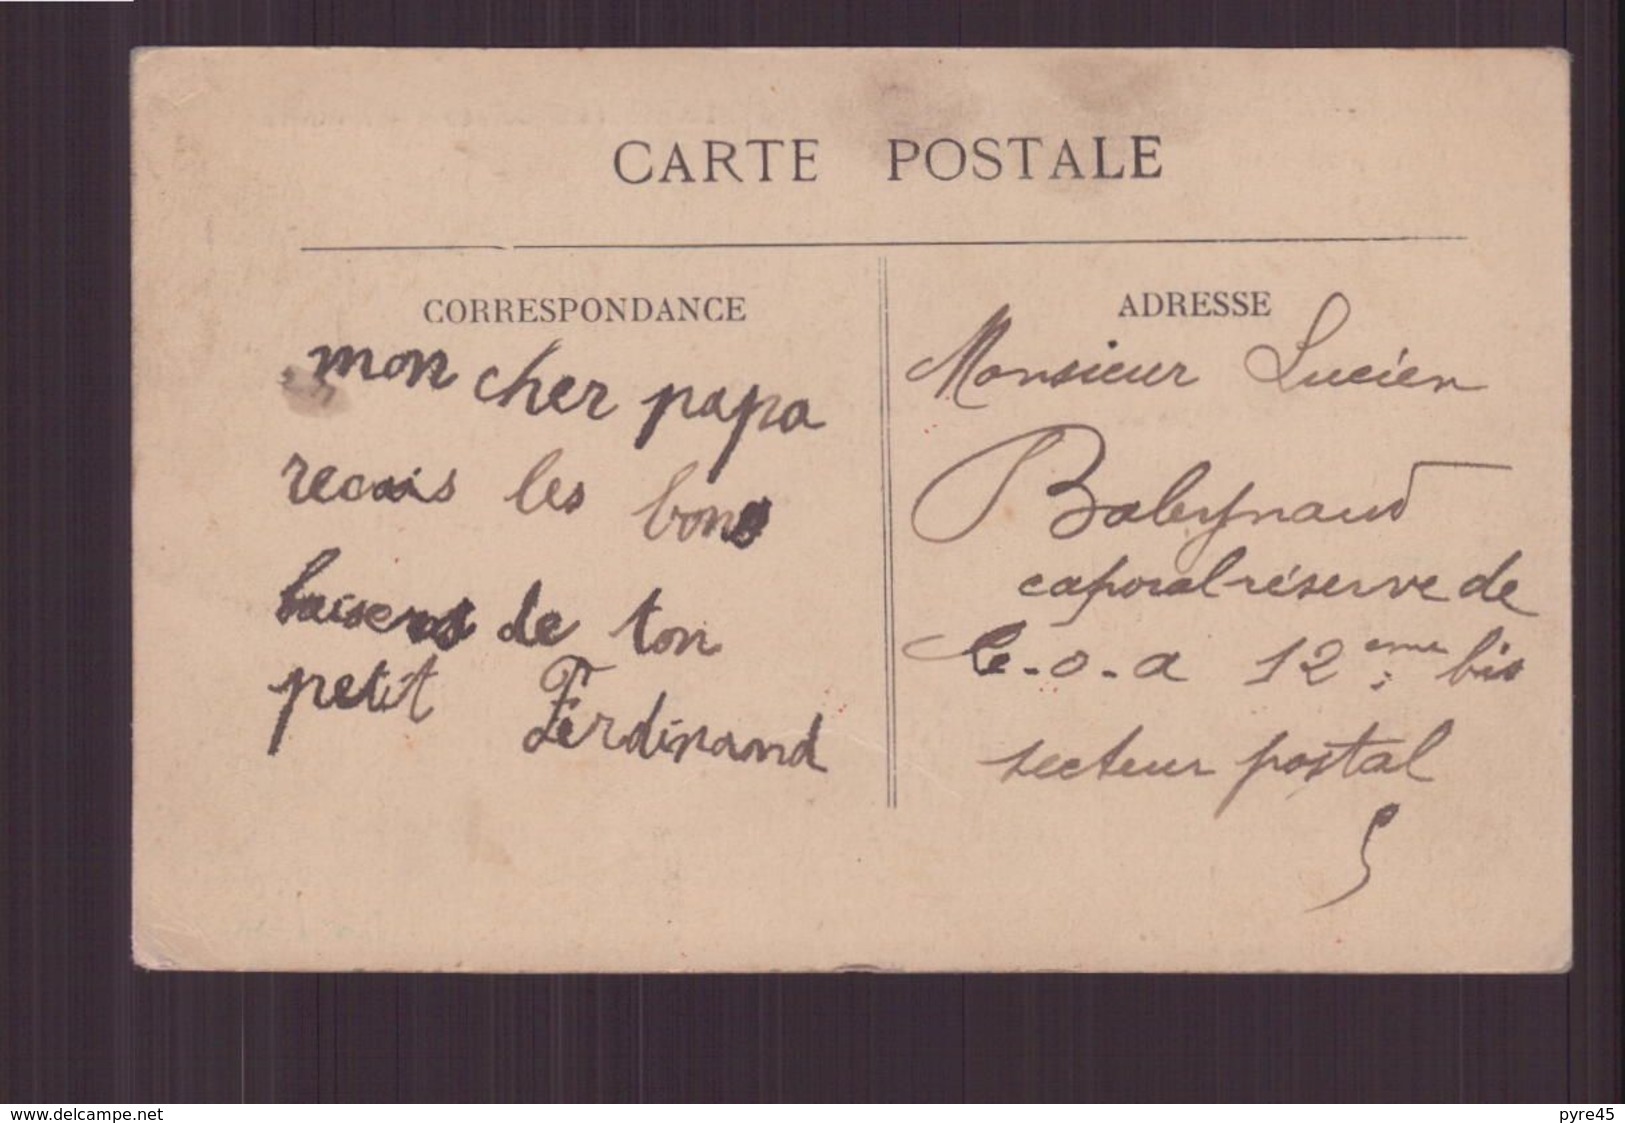 CARTE POSTALE
CORRESPONDANCE
mon cher papa
recois les bons
baisers de ton
petit Ferdinand
ADRESSE
Monsieur Lucien
caporal réserve de
C.O.A 12eme bis
secteur postal
5
www.delcampe.net
pyre45